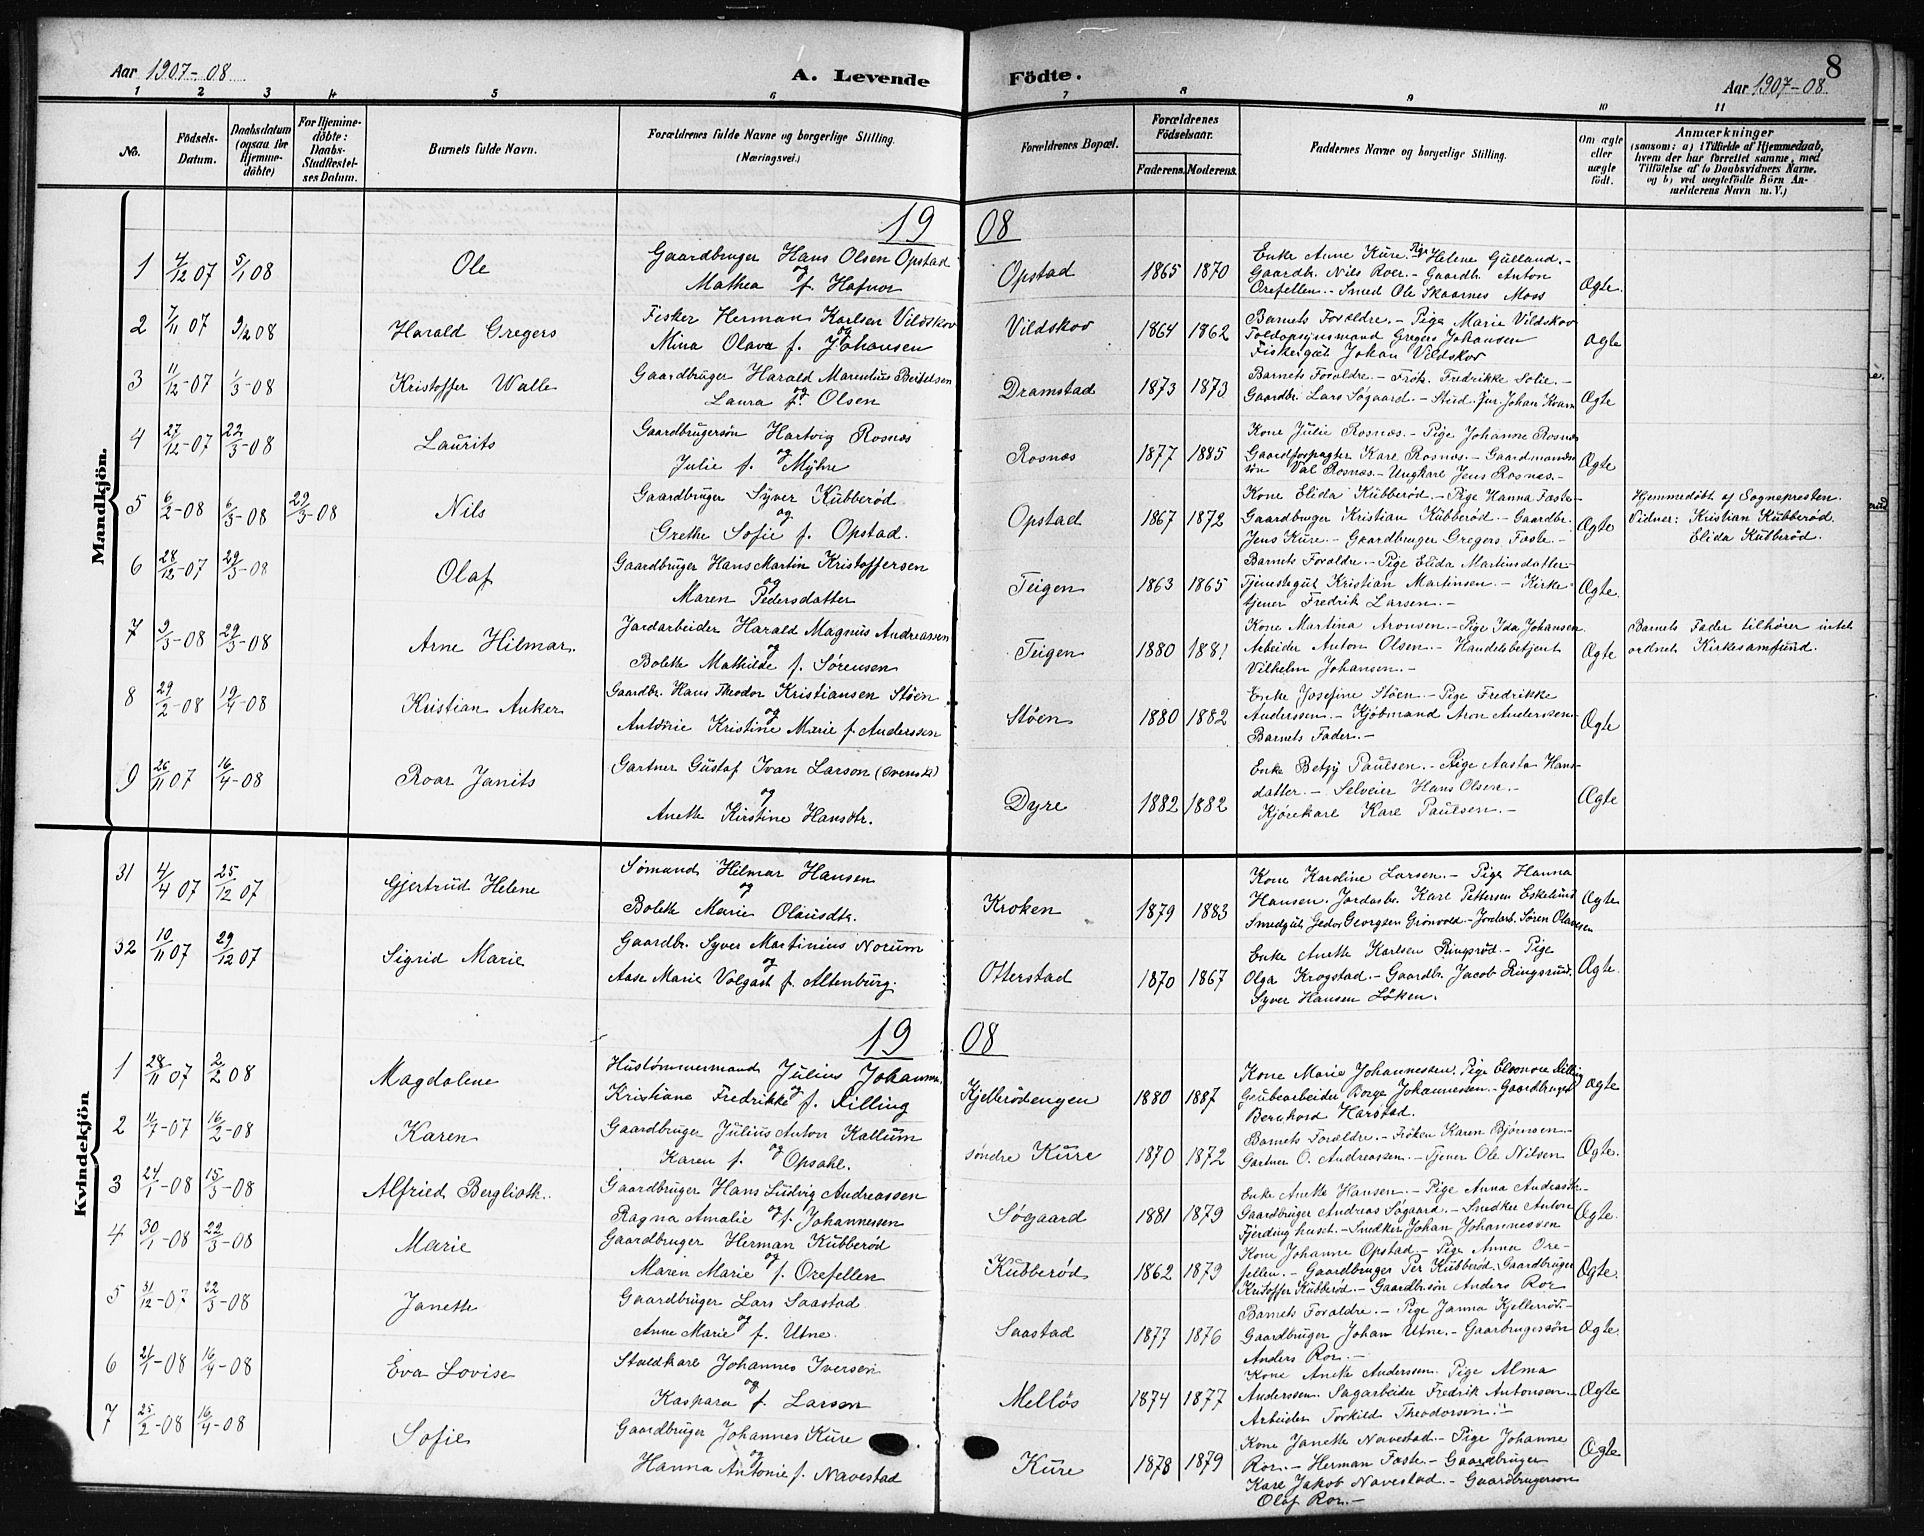 Aar 1907-08
A. Levende
Födte.
8
Aar 1907-08
1 2 3 4 5 6 7 8 9 10 11
No.
Födsels-Datum.
Daabsdatum (ogsaa for Hjemmedöbte)
For Hjemmedöbte: Daabs-Stadfæstelses Datum.
Barnets fulde Navn.
Forældrenes fulde Navne og borgerlige Stilling.
(Næringsvei.)
Forældrenes Bopæl.
Forældrenes Födselsaar.
Faderens. Moderens.
Faddernes Navne og borgerlige Stilling.
Om ægte eller uægte født.
Anmærkninger
(saasom: a) i Tilfælde af Hjemmedaab, hvem der har forrettet samme, med Tilföielse af to Daabsvidners Navne, og b) ved uægtefödte Börn Anmelderens Navn m. V.)
Mandkjön.
19 08
1 4/12 07 5/1 08 Ole
Gaardbruger Hans Olsen Opstad
og
Mathea f. Hafnor
Opstad 1865 1870
Enke Anne Kure. Pige Helene Gulland.-
Gaardb. Nils Roer.- Gaardb. Anton
Orefellen.- Smed Ole Skaarnes Moss
Ægte.
2 7/11 07 9/2 08 Harald Gregers
Fisker Herman Karlsen Vildskov
og
Mina Olava f. Johansen
Vildskov 1864 1862
Barnets Forældre.- Pige Marie Vildskov
Toldopsynsmand Gregers Johansen
Fiskergut Johan Vildskov
Ægte
3 11/12-07 1/3-08 Kristoffer Walle
Gaardbruger Harald Marentius Bertelsen
og
Laura f. Olsen
Dramstad 1873 1873
Barnets Forældre.- Frök. Fredrikke Solie.-
Gaardbr. Lars Søgaard.- Stud. jur. Johan Kvam
Ægte
4 27/12-07 22/3-08 Laurits
Gaardbrugersön Hartvig Rosnæs
og
Julie f. Myhre
Rosnæs 1877 1885
Kone Julie Rosnæs.- Pige Johanne Rosnæs
Gaardforpagter Kare Rosnæs.- Gaardmands
sön Val Rosnæs.- Ungkare Jens Rosnæs.-
Ægte
5 6/2-08 6/3-08 29/3-08 Nils
Gaardbruger Syver Kubberød
og
Grethe Sofie f. Opstad.
Opstad 1867 1872
Kone Elida Kubberød.- Pige Hanna Faste-
Gaardbruger Kristian Kubberød.- Gaardbr.
Jens Kure.- Gaardbruger Gregers Faste.-
Ægte
Hjemmedøbt af Sognepresten.
Vidner: Kristian Kubberød.
Elida Kubberød.
6 28/12-07 29/3-08 Olaf
Gaardbruger Hans Martin Kristoffersen
og
Maren Pedersdatter
Teigen 1863 1865
Barnets Forældre.- Pige Elida Martinsdatter-
Tjenestegut Kristian Martinsen.- Kirke-
tjener Fredrik Larsen.-
Ægte.
7 9/3-08 29/3-08 Arne Hilmar.
Jordarbeider Harald Magnus Andreassen
og
Bolette Mathilde f. Sørensen
Teigen 1880 1881
Kone Martina Aronsen.- Pige Ida Johansen.
Arbeider Anton Olsen.- Handelsbetjent
Vilhelm Johansen.-
Ægte
Barnets Fader tilhører intet
ordnet Kirkesamfund.
8 29/2-08 19/4-08 Kristian Anker
Gaardbr. Hans Theodor Kristiansen Støen
og
Antonie Kristine Marie f. Anderssen
Støen 1880 1882
Enke Josefine Støen.- Pige Fredrikke
Anderssen.- Kjöbmand Aron Anderssen-
Barnets Fader.-
Ægte
9 26/11 07 16/4-08 Roar Janits
Gartner Gustaf Ivan Larson (svensk)
og
Anette Kirstine Hansdtr.
Dyre 1882 1882
Enke Betzy Paulsen.- Pige Aasta Hans-
datter.- Selveier Hans Olsen.-
Kjørekarl Kare Paulsen.-
Ægte
Kvindekjön
31 4/4 07 25/12 07 Gjertrud Helene
Sømand Hilmar Hansen
og
Bolette Marie Olausdtr.
Kroken 1879 1883
Kone Karoline Larsen.- Pige Hanna
Hansen. Jordarb. Karl Pettersen Eskelund
Smedgut Gedor Georgsen Grönvold- Jordarb. Sören Olausen
Ægte.
32 10/11 07 29/12 07 Sigrid Marie
Gaardbr. Syver Martinius Norum
og
Aase Marie Volgast f. Altenburg.
Otterstad 1870 1867
Enke Anette Karlsen Ringsrød.- Pige
Olga Krogstad.- Gaardbr. Jacob Ringsrud.
Syver Hansen Løken.
Ægte.
19 08
1 28/11 07 2/2 08 Magdalene
Hustømmermand Julius Johann.
og
Kristiane Fredrikke f. Dilling
Kjellerödengen 1880 1887
Kone Marie Johannessen. Pige Elenore Dilling
Grubearbeider Borge Johannessen.- Gaardbruger
Bernhard Harstad.
Ægte
2 11/7-07 16/2-08 Karen
Gaardbruger Julius Anton Kallum
og
Karen f. Opsahl.
søndre Kure 1870 1872
Barnets Forældre.- Frøken Karen Bjørnsen-
Gartner O. Andreassen.- Tjener Ole Nilsen
Ægte.
3 24/1-08 15/3-08 Alfried Bergliotte.
Gaardbruger Hans Ludvig Andreassen
og
Ragna Amalie f. Johannessen
Søgaard 1881 1879
Enke Anette Hansen.- Pige Anna Andreasdtr.-
Gaardbruger Andreas Søgaard.- Snedker Anton
Fjerdinghuset.- Snedker Johan Johannessen
Ægte.
4 30/1-08 22/3-08 Marie
Gaardbruger Herman Kubberød
og
Maren Marie f. Orefellen
Kubberød 1862 1879
Kone Johanne Opstad.- Pige Anna Ore-
fellen.- Gaardbruger Per Kubberød. Gaardbruger
Kristoffer Kubberød.- Gaardbr.sön Anders Ror
Ægte.
5 31/12-07 22/3-08 Janette
Gaardbruger Lars Saastad
og
Anne Marie f. Utne.
Saastad 1877 1876
Barnets Forældre.- Pige Janna Kjellerröd.-
Gaardbruger Johan Utne.- Gaarbrugersön
Anders Ror.-
Ægte.
6 21/1-08 16/4-08 Eva Lovise
Staldkarl Johannes Iversen
og
Kaspara f. Larsen
Melløs 1874 1877
Kone Anette Anderssen. Pige Alma
Anderssen. Sagarbeider Fredrik Antonsen.-
Arbeider Torkild Theodorsen.-
Ægte
7 25/2-08 16/4-08 Sofie
Gaardbruger Johannes Kure
og
Hanna Antonie f. Navestad
Kure 1878 1879
Kone Janette Navestad.- Pige Johanne
Ror.- Herman Faste.- Gaardbruger
Karl Jakob Navestad.- Gaardbrugersøn
Olaf Ror.-
Ægte